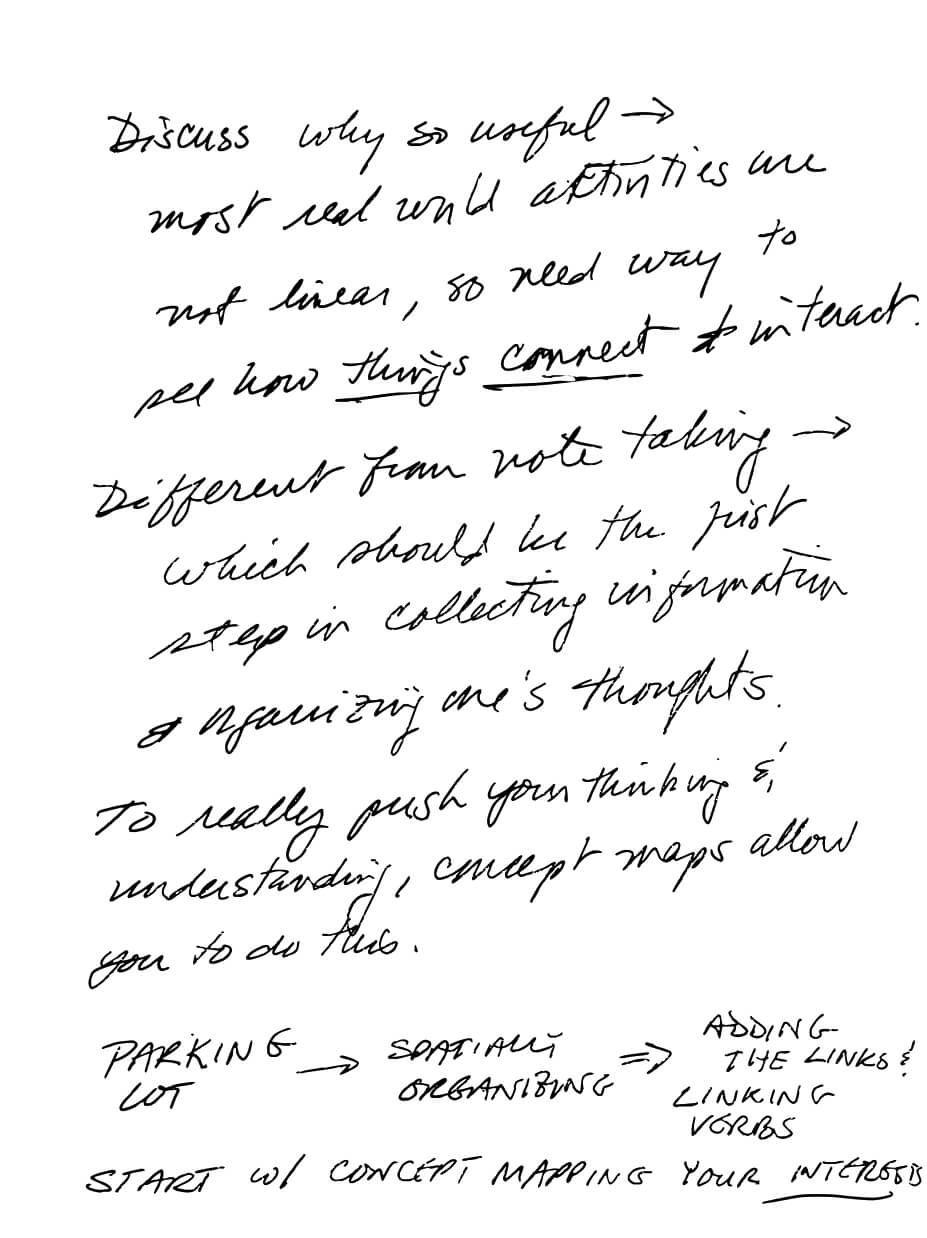 Discuss why so useful →
most real world activities are
not linear, so need way to
see how things connect & interact.
Different from note taking →
which should be the first
step in collecting information
& organizing one's thoughts.
To really push your thinking &
understanding, concept maps allow
you to do this.
PARKING LOT → SPATIALLY ORGANIZING ⇒ ADDING THE LINKS & LINKING VERBS
START w/ CONCEPT MAPPING YOUR INTERESTS